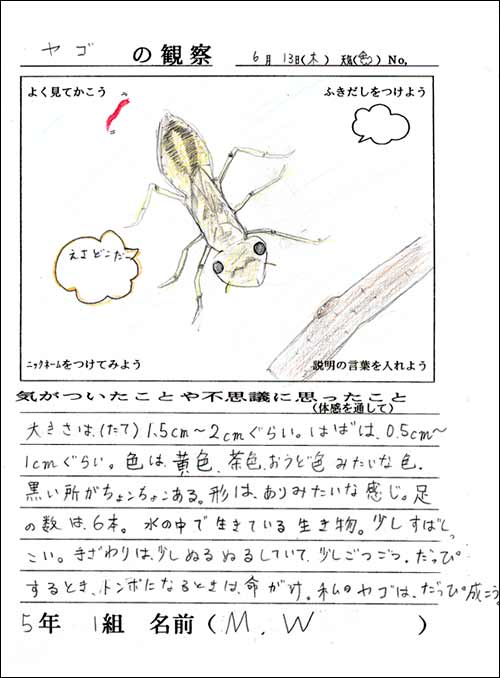 ヤゴ の観察 6月13日(木) 天気( ) No,
よく見てかこう
ふきだしをつけよう
えさどこだー
ニックネームをつけてみよう
説明の言葉を入れよう
気がついたことや不思議に思ったこと
(体感を通して)
大きさは、(たて)1.5cm〜2cmぐらい。はばは、0.5cm〜
1cmぐらい。色は、黄色、茶色、おうど色みたいな色。
黒い所がちょこちょこある。形は、ありみたいな感じ。足
の数は、6本。水の中で生きている生き物。少しすばしっ
こい。手ざわりは、少しぬるぬるしていて、少しごつごつ。だっぴ
するとき、トンボになるときは、命がけ。私のヤゴは、だっぴ成こう。
5年 1組 名前(M.W )